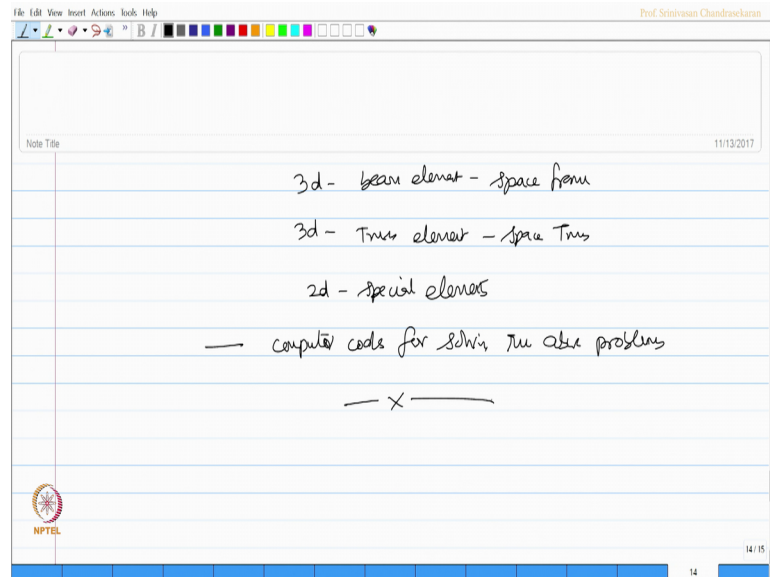 File Edit View Insert Actions Tools Help
Prof. Srinivasan Chandrasekaran
B I
Note Title
11/13/2017
3d - beam element - space frame
3d - Truss element - space Truss
2d - special elements
— computer code for solving the above problems
— x —
NPTEL
14 / 15
14